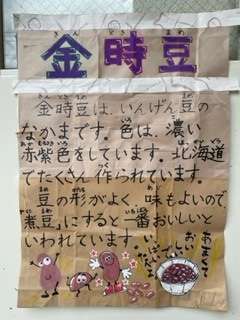 きん とき まめ
金時豆
金時豆は、いんげん豆の
なかまです。色は、濃い
赤紫色をしています。北海道
でたくさん作られています。
豆の形がよく、味もよいので
「煮豆」にすると一番おいしいと
いわれています。
あまくて
おいしい